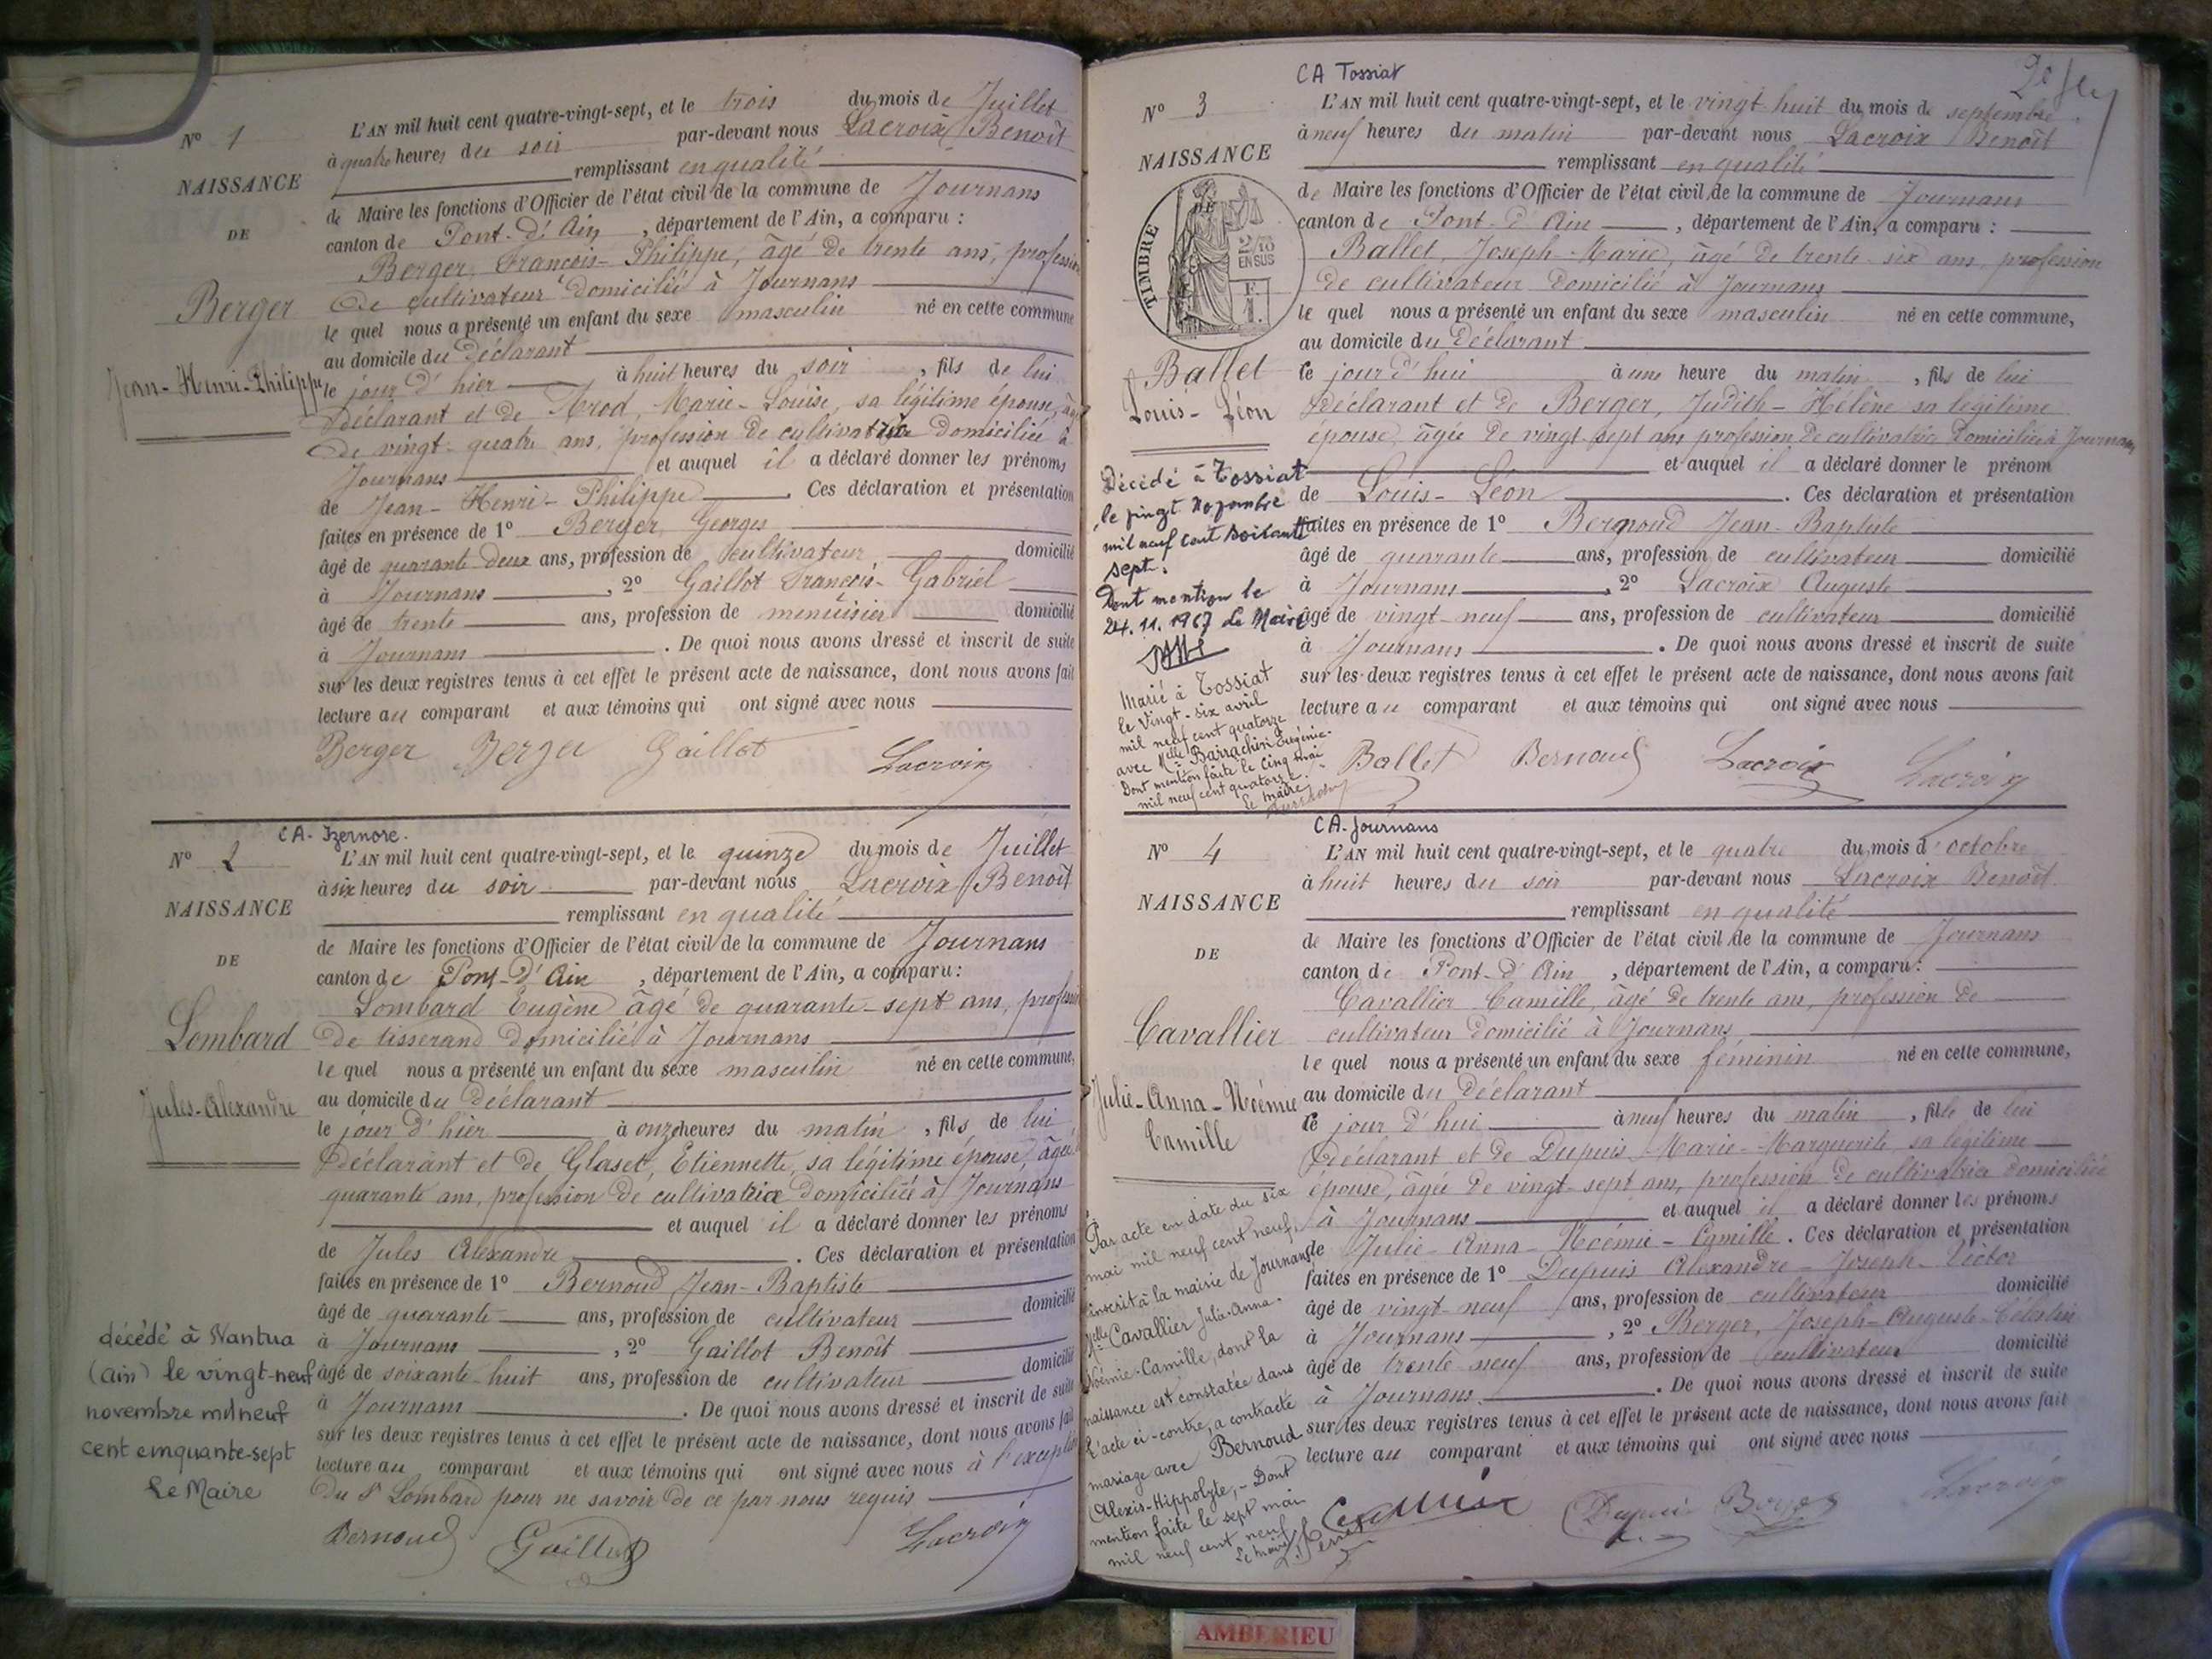 Nº 1
NAISSANCE
DE
Berger
Jean-Henri-Philippe
L'AN mil huit cent quatre-vingt-sept, et le trois du mois de Juillet
à quatre heures du soir par-devant nous Lacroix Benoît
remplissant en qualité
de Maire les fonctions d'Officier de l'état civil de la commune de Journans
canton de Pont-d'Ain, département de l'Ain, a comparu :
Berger, François-Philippe, âgé de trente ans, profession
de cultivateur domicilié à Journans
le quel nous a présenté un enfant du sexe masculin né en cette commune
au domicile du Déclarant
le jour d'hier à huit heures du soir, fils de lui
Déclarant et de Brod, Marie-Louise, sa légitime épouse, âgée
de vingt-quatre ans, profession de cultivatrice domiciliée à
Journans et auquel il a déclaré donner les prénoms
de Jean-Henri-Philippe. Ces déclaration et présentation
faites en présence de 1º Berger, Georges
âgé de quarante-deux ans, profession de cultivateur domicilié
à Journans, 2º Gaillot François-Gabriel
âgé de trente ans, profession de menuisier domicilié
à Journans. De quoi nous avons dressé et inscrit de suite
sur les deux registres tenus à cet effet le présent acte de naissance, dont nous avons fait
lecture au comparant et aux témoins qui ont signé avec nous
Berger Berger Gaillot Lacroix
CA. Izernore.
Nº 2
NAISSANCE
DE
Lombard
Jules-Alexandre
L'AN mil huit cent quatre-vingt-sept, et le quinze du mois de Juillet
à six heures du soir par-devant nous Lacroix Benoît
remplissant en qualité
de Maire les fonctions d'Officier de l'état civil de la commune de Journans
canton de Pont-d'Ain, département de l'Ain, a comparu :
Lombard Eugène âgé de quarante-sept ans, profession
de tisserand domicilié à Journans
le quel nous a présenté un enfant du sexe masculin né en cette commune,
au domicile du Déclarant
le jour d'hier à onze heures du matin, fils de lui
Déclarant et de Glaset, Etiennette, sa légitime épouse, âgée
quarante ans, profession de cultivatrice domiciliée à Journans
et auquel il a déclaré donner les prénoms
de Jules Alexandre. Ces déclaration et présentation
faites en présence de 1º Bernoud Jean-Baptiste
âgé de quarante ans, profession de cultivateur domicilié
à Journans, 2º Gaillot Benoît
âgé de soixante-huit ans, profession de cultivateur domicilié
à Journans. De quoi nous avons dressé et inscrit de suite
sur les deux registres tenus à cet effet le présent acte de naissance, dont nous avons fait
lecture au comparant et aux témoins qui ont signé avec nous à l'exception
du Sr Lombard pour ne savoir de ce par nous requis
Bernoud Gaillot Lacroix
décédé à Nantua
(ain) le vingt-neuf
novembre mil neuf
cent cinquante-sept
Le Maire
CA Tossiat
Nº 3
NAISSANCE
TIMBRE
DE
2/10
EN SUS
F.
1.
Ballet
Louis-Léon
L'AN mil huit cent quatre-vingt-sept, et le vingt-huit du mois de septembre
à neuf heures du matin par-devant nous Lacroix Benoît
remplissant en qualité
de Maire les fonctions d'Officier de l'état civil de la commune de Journans
canton de Pont-d'Ain, département de l'Ain, a comparu :
Ballet, Joseph-Marie, âgé de trente-six ans, profession
de cultivateur domicilié à Journans
le quel nous a présenté un enfant du sexe masculin né en cette commune,
au domicile du Déclarant
ce jour d'hui à une heure du matin, fils de lui
Déclarant et de Berger, Judith-Hélène sa légitime
épouse, âgée de vingt-sept ans profession de cultivatrice domiciliée à Journans
et auquel il a déclaré donner le prénom
de Louis-Léon. Ces déclaration et présentation
faites en présence de 1º Bernoud Jean-Baptiste
âgé de quarante ans, profession de cultivateur domicilié
à Journans, 2º Lacroix Auguste
âgé de vingt-neuf ans, profession de cultivateur domicilié
à Journans. De quoi nous avons dressé et inscrit de suite
sur les deux registres tenus à cet effet le présent acte de naissance, dont nous avons fait
lecture au comparant et aux témoins qui ont signé avec nous
Ballet Bernoud Lacroix Lacroix
Décédé à Tossiat
le vingt novembre
mil neuf cent soixante
sept.
Dont mention le
24.11.1967 Le Maire
Marié à Tossiat
le vingt-six avril
mil neuf cent quatorze
avec Melle Barrachin Eugénie.
Dont mention faite le cinq mai
mil neuf cent quatorze.
Le maire
CA. Journans
Nº 4
NAISSANCE
DE
Cavallier
Julie-Anna-Noémie
Camille
L'AN mil huit cent quatre-vingt-sept, et le quatre du mois d'octobre
à huit heures du soir par-devant nous Lacroix Benoît
remplissant en qualité
de Maire les fonctions d'Officier de l'état civil de la commune de Journans
canton de Pont-d'Ain, département de l'Ain, a comparu :
Cavallier Camille, âgé de trente ans, profession de
cultivateur domicilié à Journans
le quel nous a présenté un enfant du sexe féminin né en cette commune,
au domicile du Déclarant
ce jour d'hui à neuf heures du matin, fille de lui
Déclarant et de Dupuis Marie-Marguerite, sa légitime
épouse, âgée de vingt-sept ans, profession de cultivatrice domiciliée
à Journans et auquel il a déclaré donner les prénoms
de Julie-Anna-Noémie-Camille. Ces déclaration et présentation
faites en présence de 1º Dupuis Alexandre-Joseph-Victor
âgé de vingt-neuf ans, profession de cultivateur domicilié
à Journans, 2º Berger, Joseph-Auguste-Célestin
âgé de trente-neuf ans, profession de cultivateur domicilié
à Journans. De quoi nous avons dressé et inscrit de suite
sur les deux registres tenus à cet effet le présent acte de naissance, dont nous avons fait
lecture au comparant et aux témoins qui ont signé avec nous
Cavallier Dupuis Berger Lacroix
Par acte en date du six
mai mil neuf cent neuf,
inscrit à la mairie de Journans
Melle Cavallier Julie-Anna-
Noémie-Camille, dont la
naissance est constatée dans
l'acte ci-contre, a contracté
mariage avec Bernoud
(Alexis-Hippolyte,- Dont
mention faite le sept mai
mil neuf cent neuf
Le maire
AMBERIEU